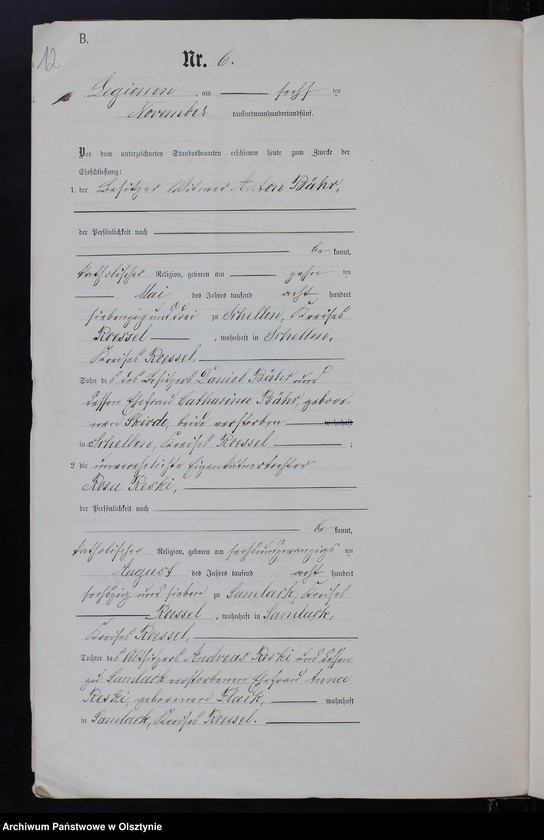 B.
12
Nr. 6.
Legienen, am sechsten
November tausendneunhundertundfünf.
Vor dem unterzeichneten Standesbeamten erschienen heute zum Zwecke der
Eheschließung:
1. der Besitzer Witwer Anton Bähr,
der Persönlichkeit nach
bekannt,
katholischer Religion, geboren am zehnten
Mai des Jahres tausend acht hundert
siebenzigunddrei zu Schellen, Kreises
Roessel, wohnhaft in Schellen,
Kreises Roessel.
Sohn des Besitzers Daniel Bähr und
dessen Ehefrau Catharina Bähr, gebore-
nen Skirde, beide verstorben wohnhaft
in Schellen, Kreises Roessel;
2. die unverehelichte Eigentümertochter
Rosa Reski,
der Persönlichkeit nach
bekannt,
katholischer Religion, geboren am sechsundzwanzigsten
August des Jahres tausend acht hundert
sechszig und sieben zu Samlack, Kreises
Roessel, wohnhaft in Samlack,
Kreises Roessel,
Tochter des Altsitzers Andreas Reski und dessen
zu Samlack verstorbenen Ehefrau Anna
Reski, geborenen wohnhaft
in Samlack, Kreises Roessel.
Archiwum Państwowe w Olsztynie